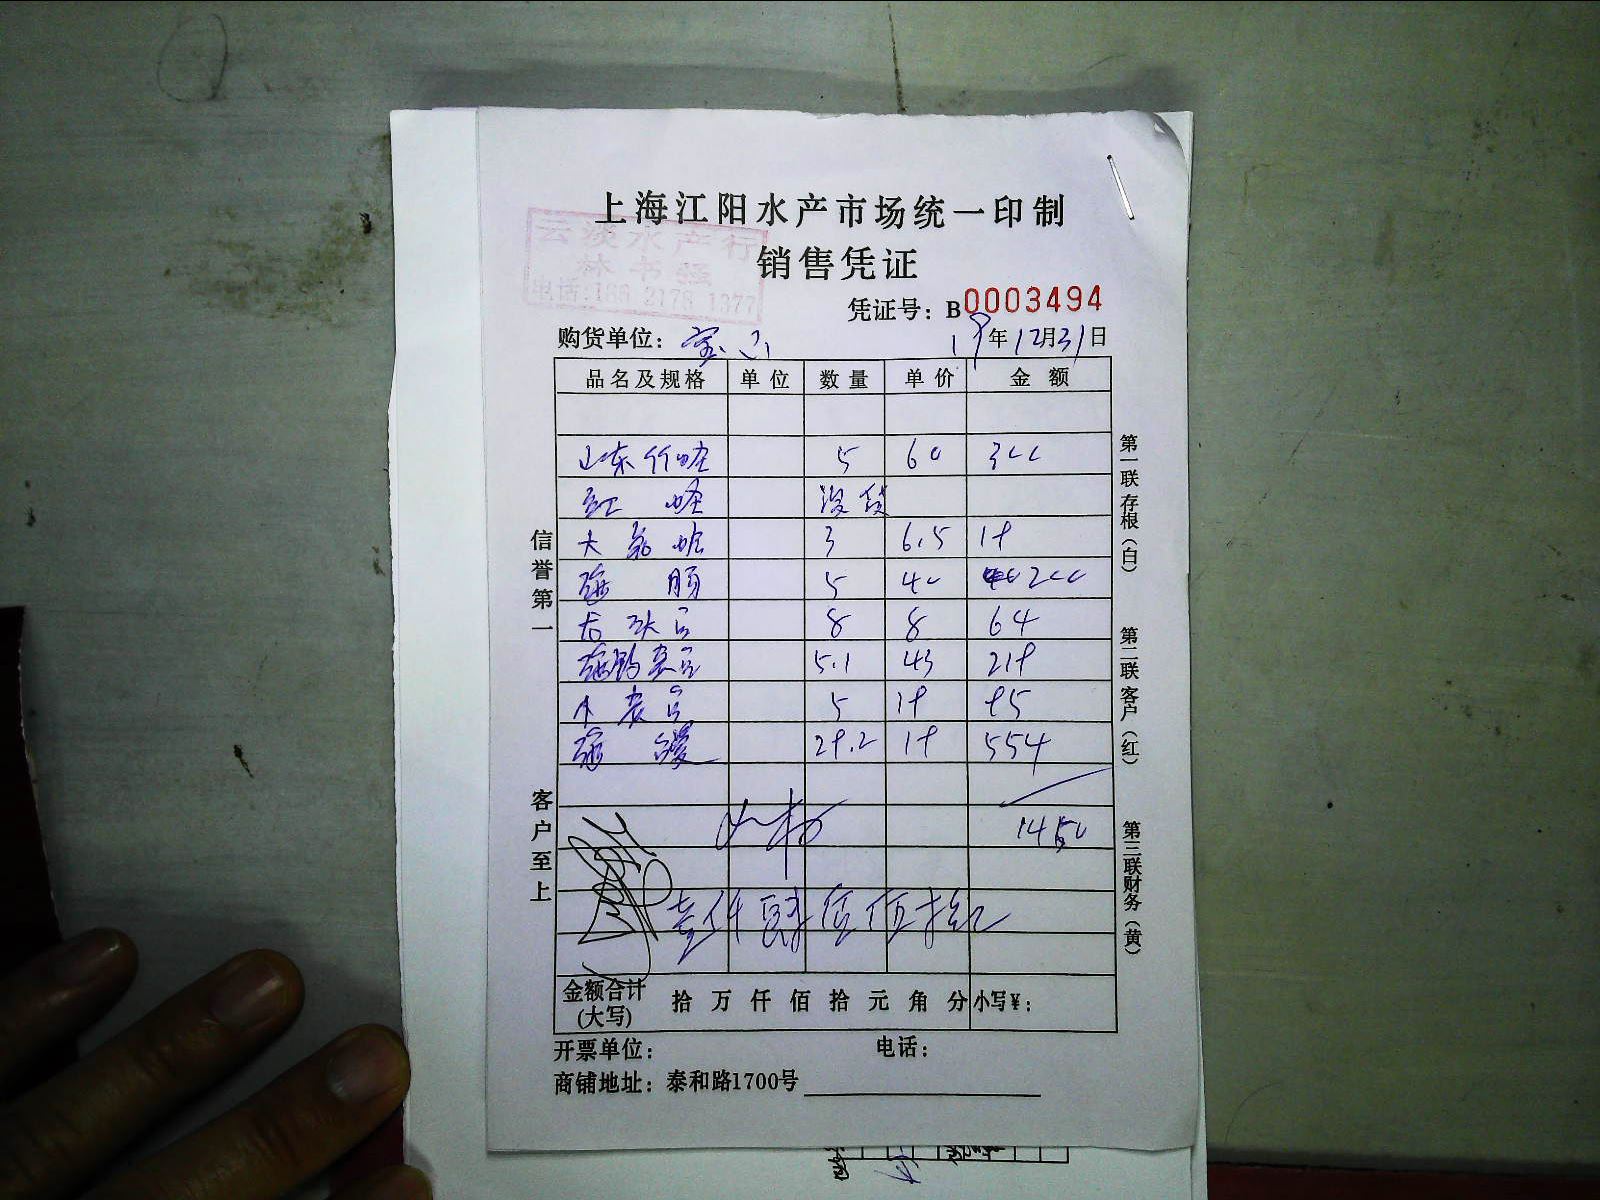 上海江阳水产市场统一印制
云淡水产行
销售凭证
电话:186 2178 1377
凭证号：B0003494
购货单位：宝山 19年12月31日
品名及规格 单位 数量 单价 金额
山东竹蛏 5 60 300
红蛏 没货
大 蛤 3 6.5 19
海肠 5 40 200
8 8 64
5.1 43 219
小 5 19 95
29.2 19 554
1450
壹仟肆佰伍拾
金额合计(大写) 拾 万 仟 佰 拾 元 角 分 小写¥：
开票单位： 电话：
商铺地址：泰和路1700号
信誉第一
客户至上
第一联存根（白）
第二联客户（红）
第三联财务（黄）